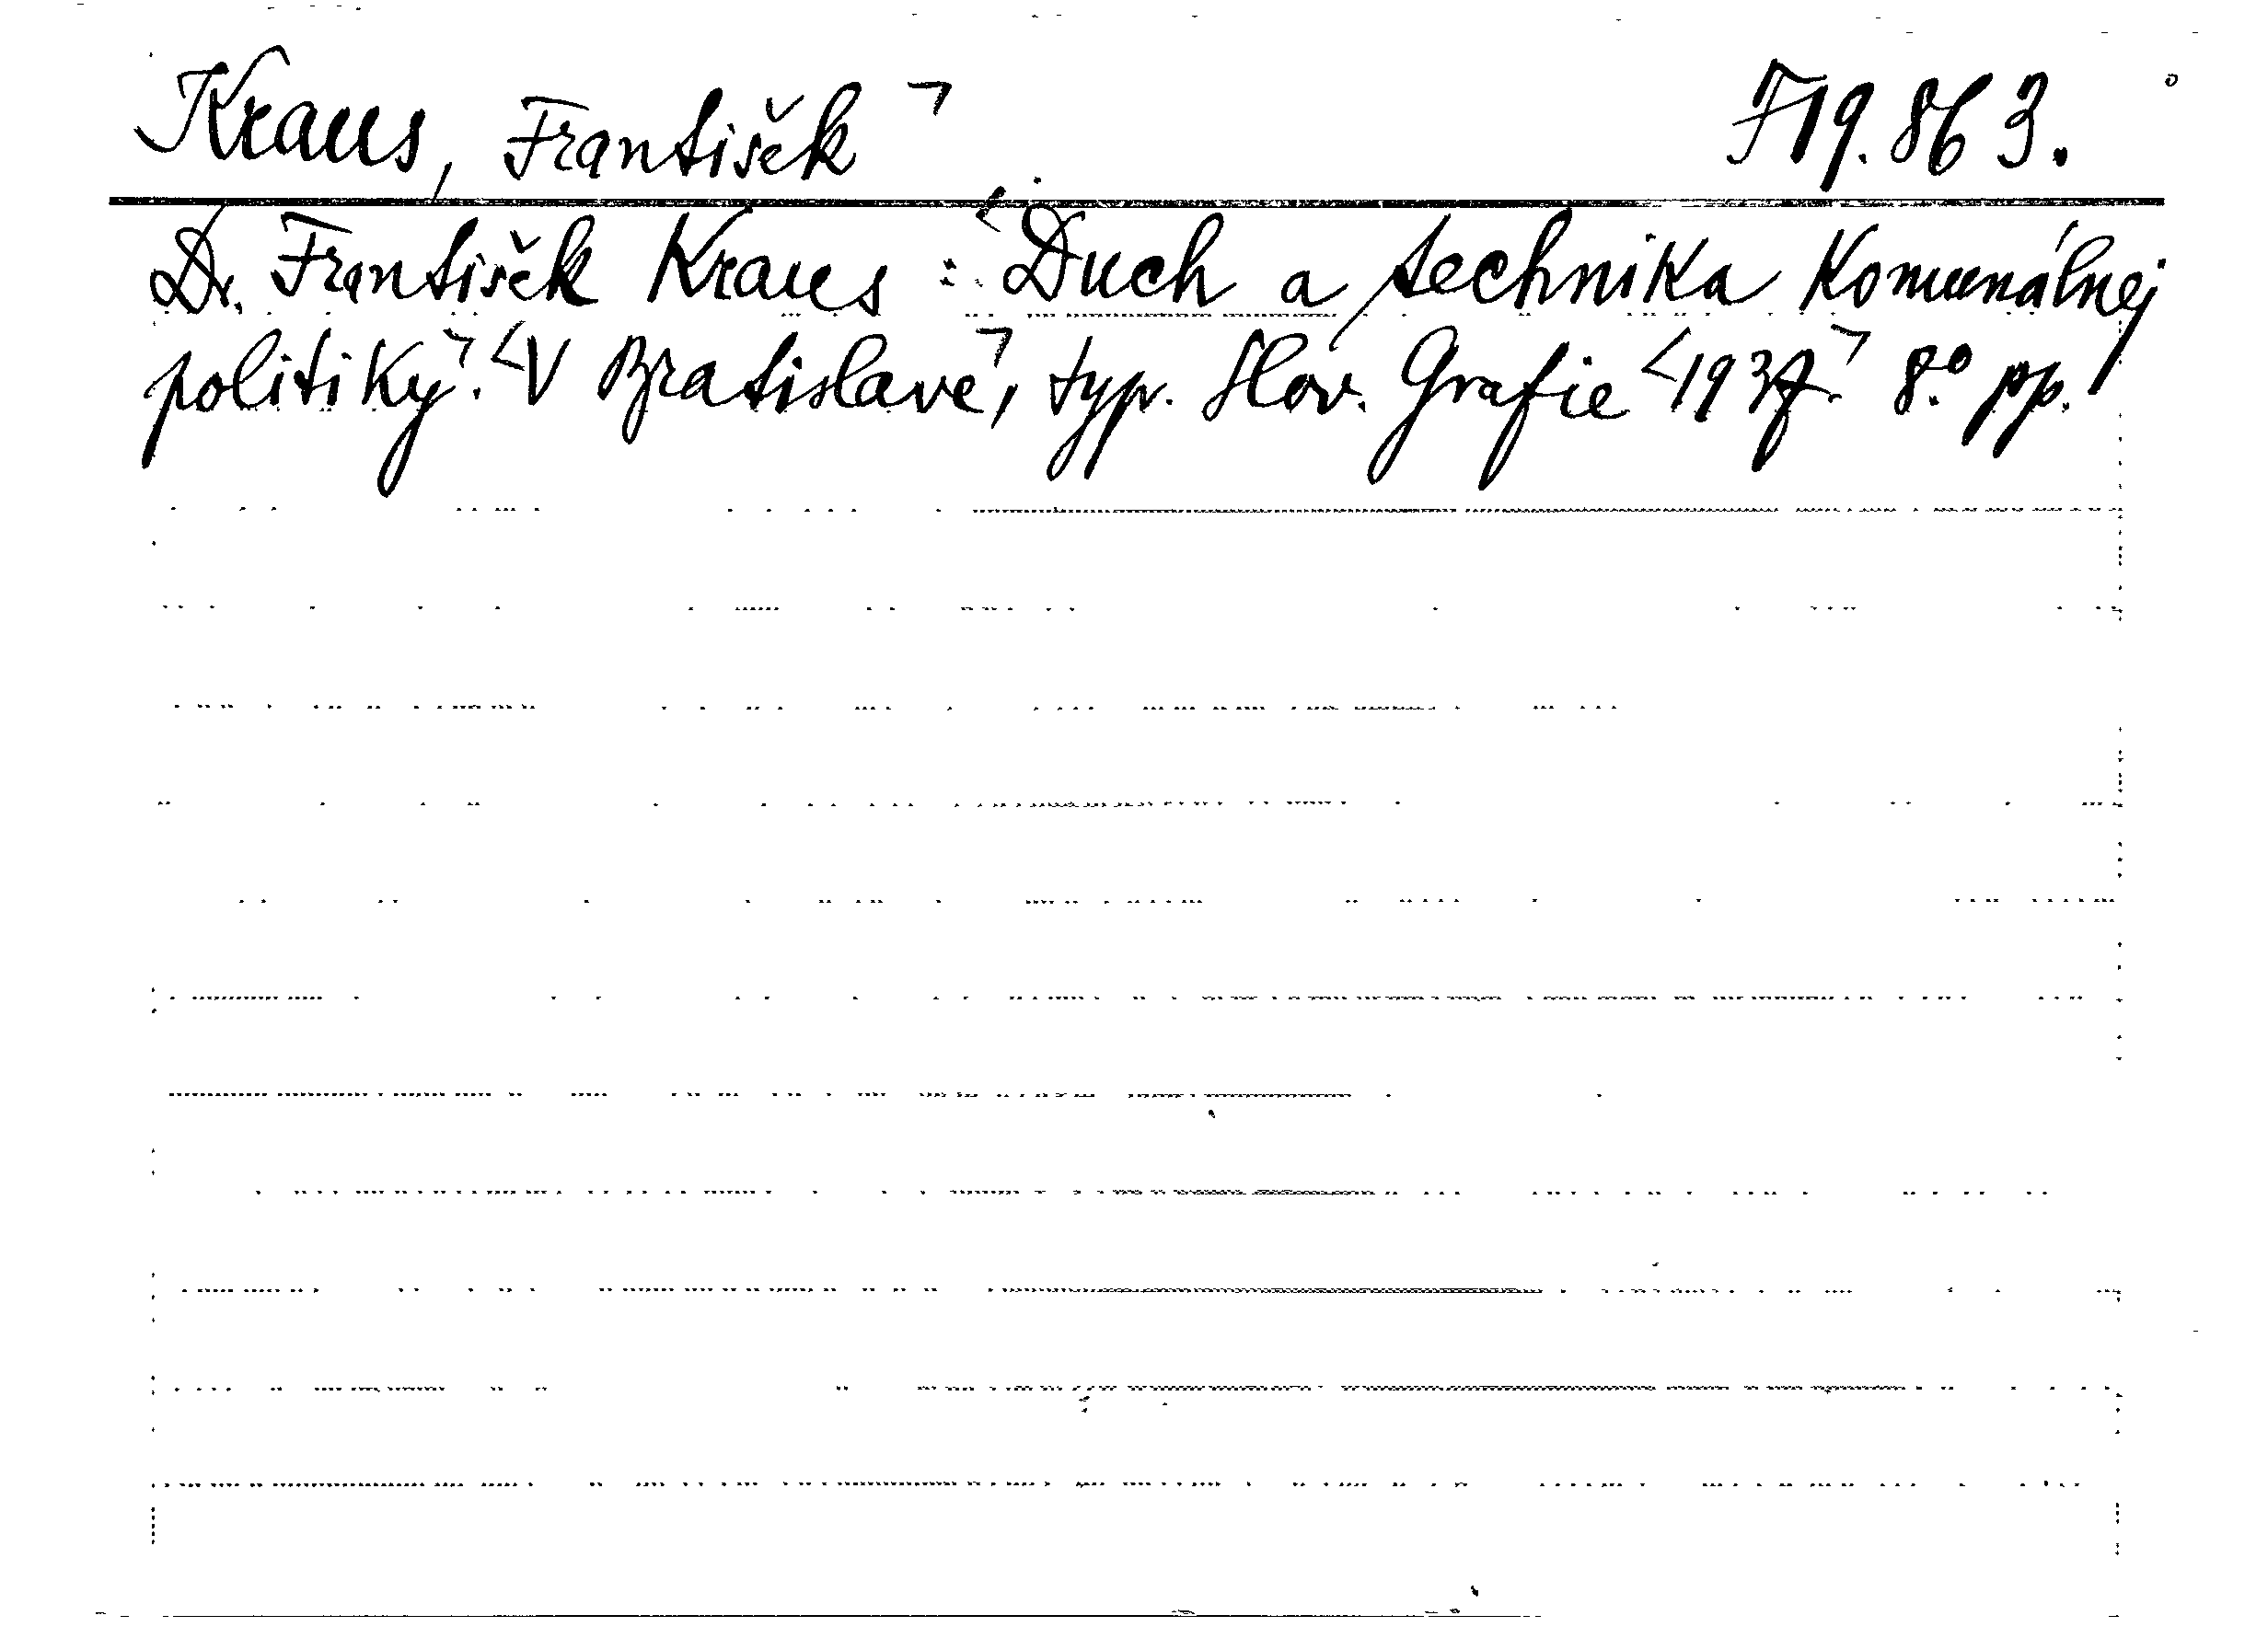 Kraus, František ¬ F 19.863.
Dr. František Kraus: <Duch a technika komunálnej
politiky¬. <V Bratislave¬, typ. Slov. Grafie <1937.¬ 8.° pp.